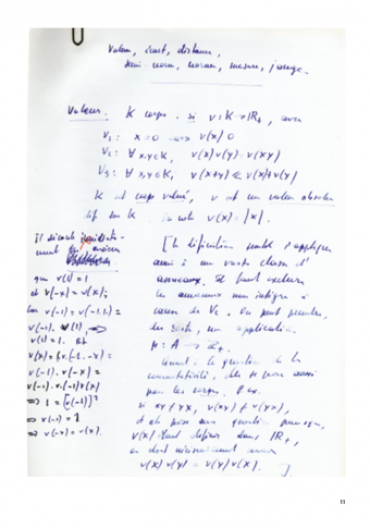 Valeur, écart, distance,
semi-norme, norme, mesure, jauge.
Valeur. K corps. si v: K → ℝ₊, avec
V₁: x=0 ⟺ v(x)=0
V₂: ∀ x,y ∈ K, v(x)v(y) = v(xy)
V₃: ∀ x,y ∈ K, v(x+y) ≤ v(x)+v(y)
K est corps valué, v est une valeur absolue
sur K. v(x) = |x|.
il découle
que v(1)=1
et v(-x)=v(x);
v(-1)=v(-1.1)=
v(-1).v(1) ⟹
v(1)=1. Et
v(-1).v(-x)=
⟹ 1=[v(-1)]²
⟹ v(-1)=1
⟹ v(-x)=v(x).
[La définition s'applique
aussi à une vaste classe d'
anneaux. Il faut exclure
les anneaux non intègres à
cause de V₂. On peut prendre,
du reste, une application
μ: A → ℝ₊.
Quant à la question de la
commutativité, elle se pose aussi
pour les corps. P. ex.
si xy ≠ yx, v(xy) ≠ v(yx),
et se pose une question presque,
v(x) étant défini dans ℝ₊,
on doit nécessairement avoir
v(x)v(y) = v(y)v(x). ]
11